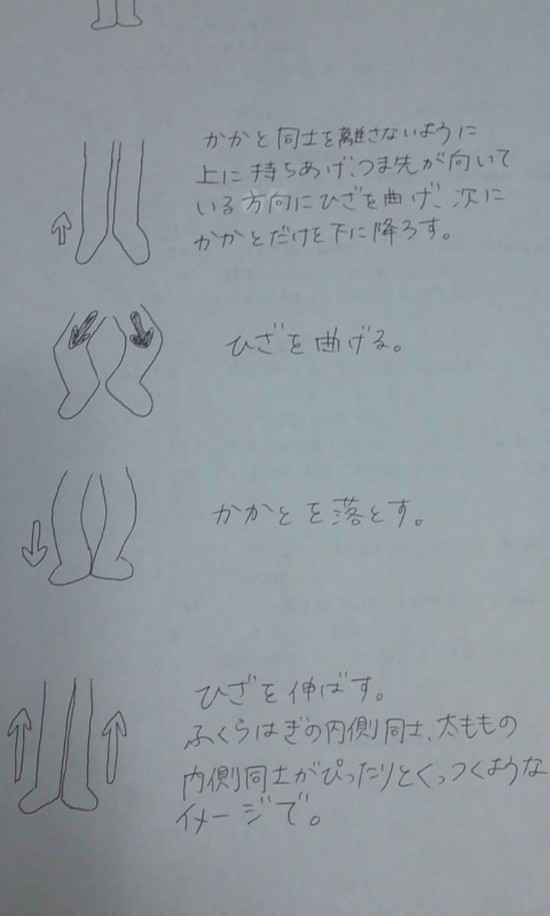 かかと同士を離さないように
上に持ちあげ、つま先が向いて
いる方向にひざを曲げ、次に
かかとだけを下に降ろす。
ひざを曲げる。
かかとを落とす。
ひざを伸ばす。
ふくらはぎの内側同士、太ももの
内側同士がぴったりとくっつくような
イメージで。